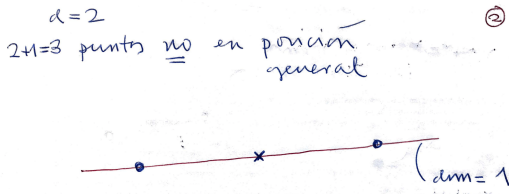 d=2
②
2+1=3 puntos no en posición
general
dim = 1